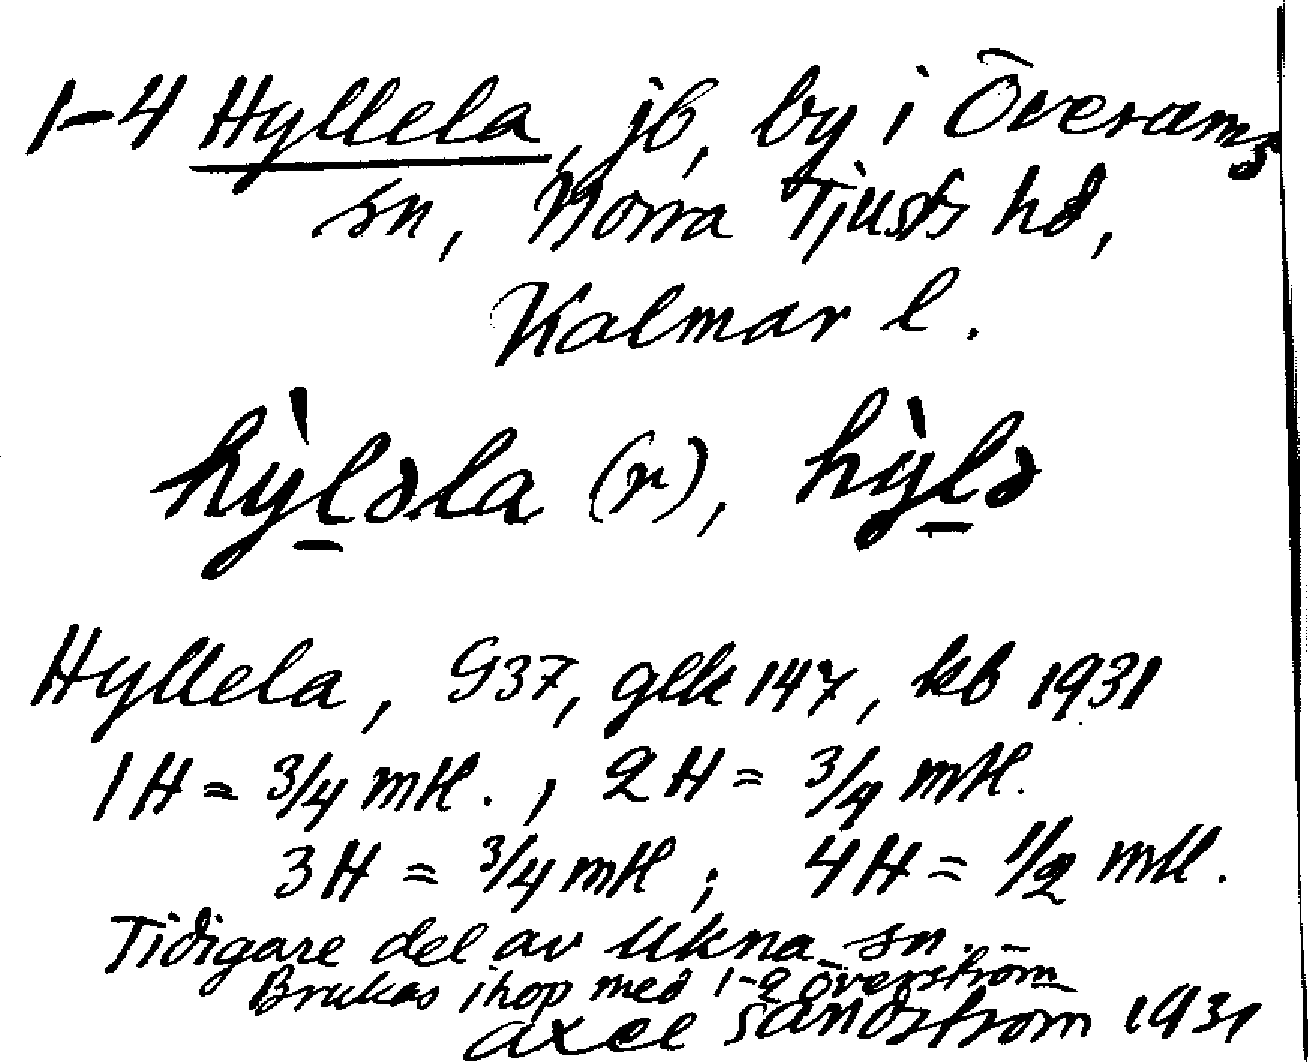 1-4 Hyllela, jb, by i Överums
sn, Norra Tjusts hd,
Kalmar l.
hỳlǝla (r), hỳlǝ
Hyllela, G37, glk 147, kb 1931
1 H = 3/4 mtl. , 2 H = 3/4 mtl.
3 H = 3/4 mtl ; 4 H = 1/2 mtl.
Tidigare del av Ukna sn.
Brukas ihop med 1-2 Överström
Axel Sandström 1931